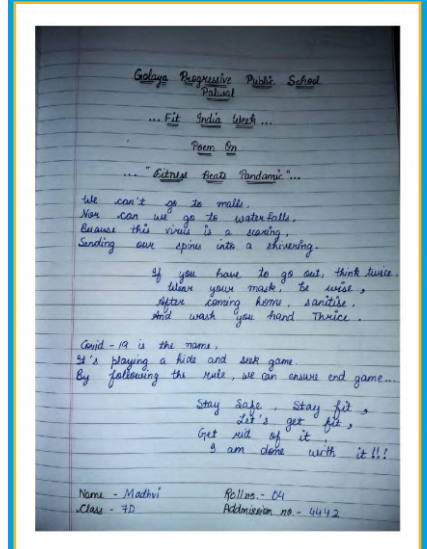 Golaya Progressive Public School
Palwal
... Fit India Week ...
Poem On
... "Fitness Beats Pandamic"...
We can't go to malls,
Nor can we go to waterfalls,
Because this virus is a scaring,
Sending our spines into a shivering.
If you have to go out, think twice,
Wear your mask, be wise,
After coming home, sanitise,
And wash you hand Thrice.
Covid-19 is the name,
It's playing a hide and seek game.
By following the rule, we can ensure end game....
Stay Safe, Stay fit,
Let's get fit,
Get rid of it,
I am done with it!!!
Name - Madhvi Roll no. - 04
Class - 7D Addmission no. - 4442